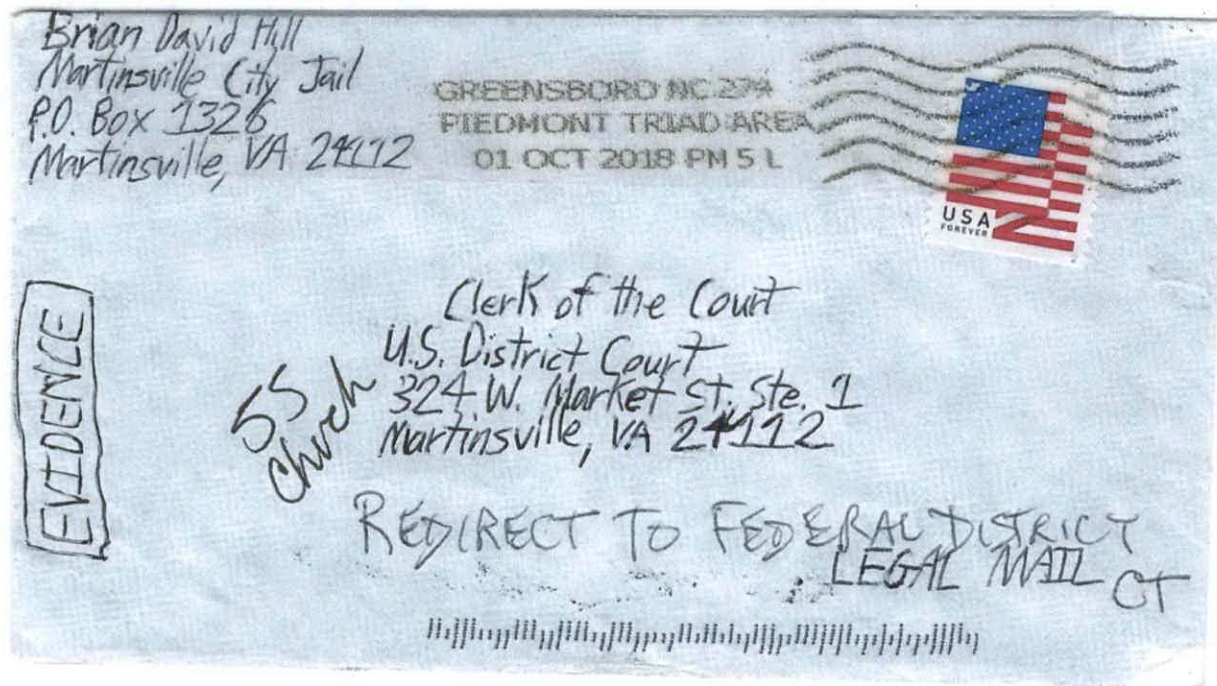 Brian David Hill
Martinsville City Jail
P.O. Box 1326
Martinsville, VA 24112
GREENSBORO NC 274
PIEDMONT TRIAD AREA
01 OCT 2018 PM 5 L
USA
FOREVER
EVIDENCE
Clerk of the Court
U.S. District Court
324 W. Market St. Ste. 1
Martinsville, VA 24112
55
REDIRECT TO FEDERAL DISTRICT
CT
LEGAL MAIL